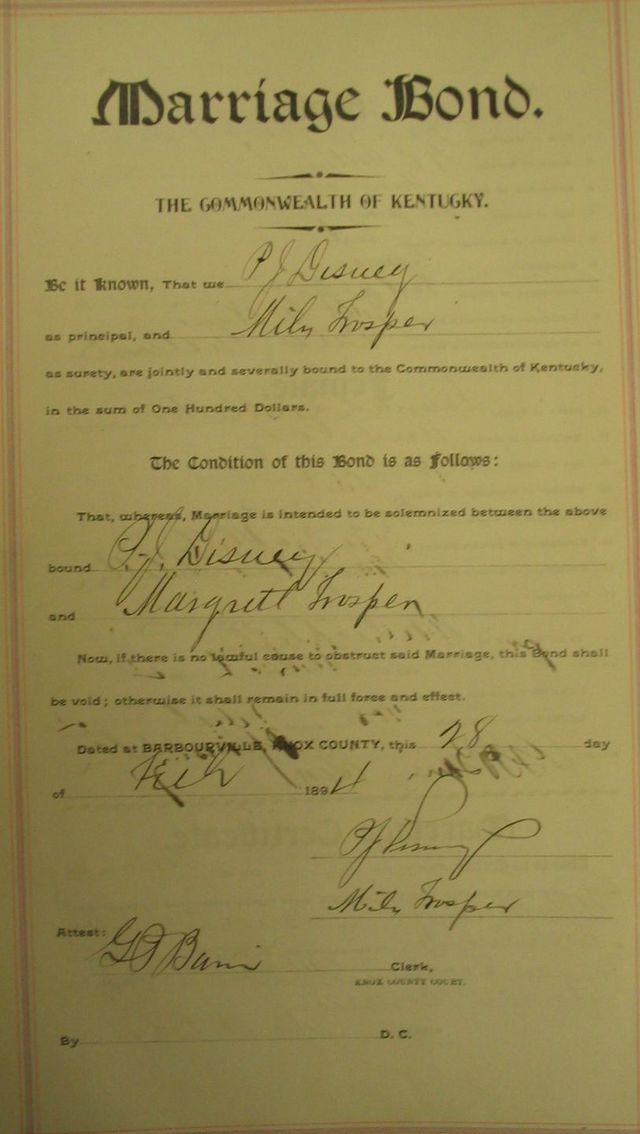 Marriage Bond.
THE COMMONWEALTH OF KENTUCKY.
Be it Known, That we P J Disney
as principal, and Mily Trosper
as surety, are jointly and severally bound to the Commonwealth of Kentucky,
in the sum of One Hundred Dollars.
The Condition of this Bond is as Follows:
That, whereas, Marriage is intended to be solemnized between the above
bound P. J. Disney
and Margrett Trosper
Now, if there is no lawful cause to obstruct said Marriage, this Bond shall
be void; otherwise it shall remain in full force and effect.
Dated at BARBOURVILLE, KNOX COUNTY, this 28 day
of Feb 1894
P J Disney
Mily Trosper
Attest:
G D Clerk,
KNOX COUNTY COURT.
By D. C.